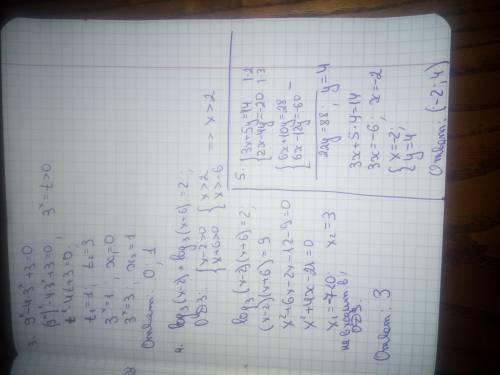 3. 9ˣ-4·3ˣ+3=0
(3ˣ)²-4·3ˣ+3=0, 3ˣ=t>0
t²-4t+3=0
t₁=1; t₂=3
3ˣ=1, x₁=0
3ˣ=3, x₂=1
Ответ: 0, 1
4. log₃(x-2)+log₃(x+6)=2;
ОДЗ: {x-2>0 {x>2
{x+6>0 {x>-6 => x>2
log₃(x-2)(x+6)=2;
(x-2)(x+6)=9
x²+6x-2x-12-9=0
x²+4x-21=0
x₁=-7<0 x₂=3
не входит в
ОДЗ.
Ответ: 3
5. {3x+5y=14 |·2
{2x-4y=-20 |·3
{6x+10y=28
{6x-12y=-60 -
22y=88; y=4
3x+5·4=14
3x=-6; x=-2
{x=-2,
{y=4
Ответ: (-2; 4)